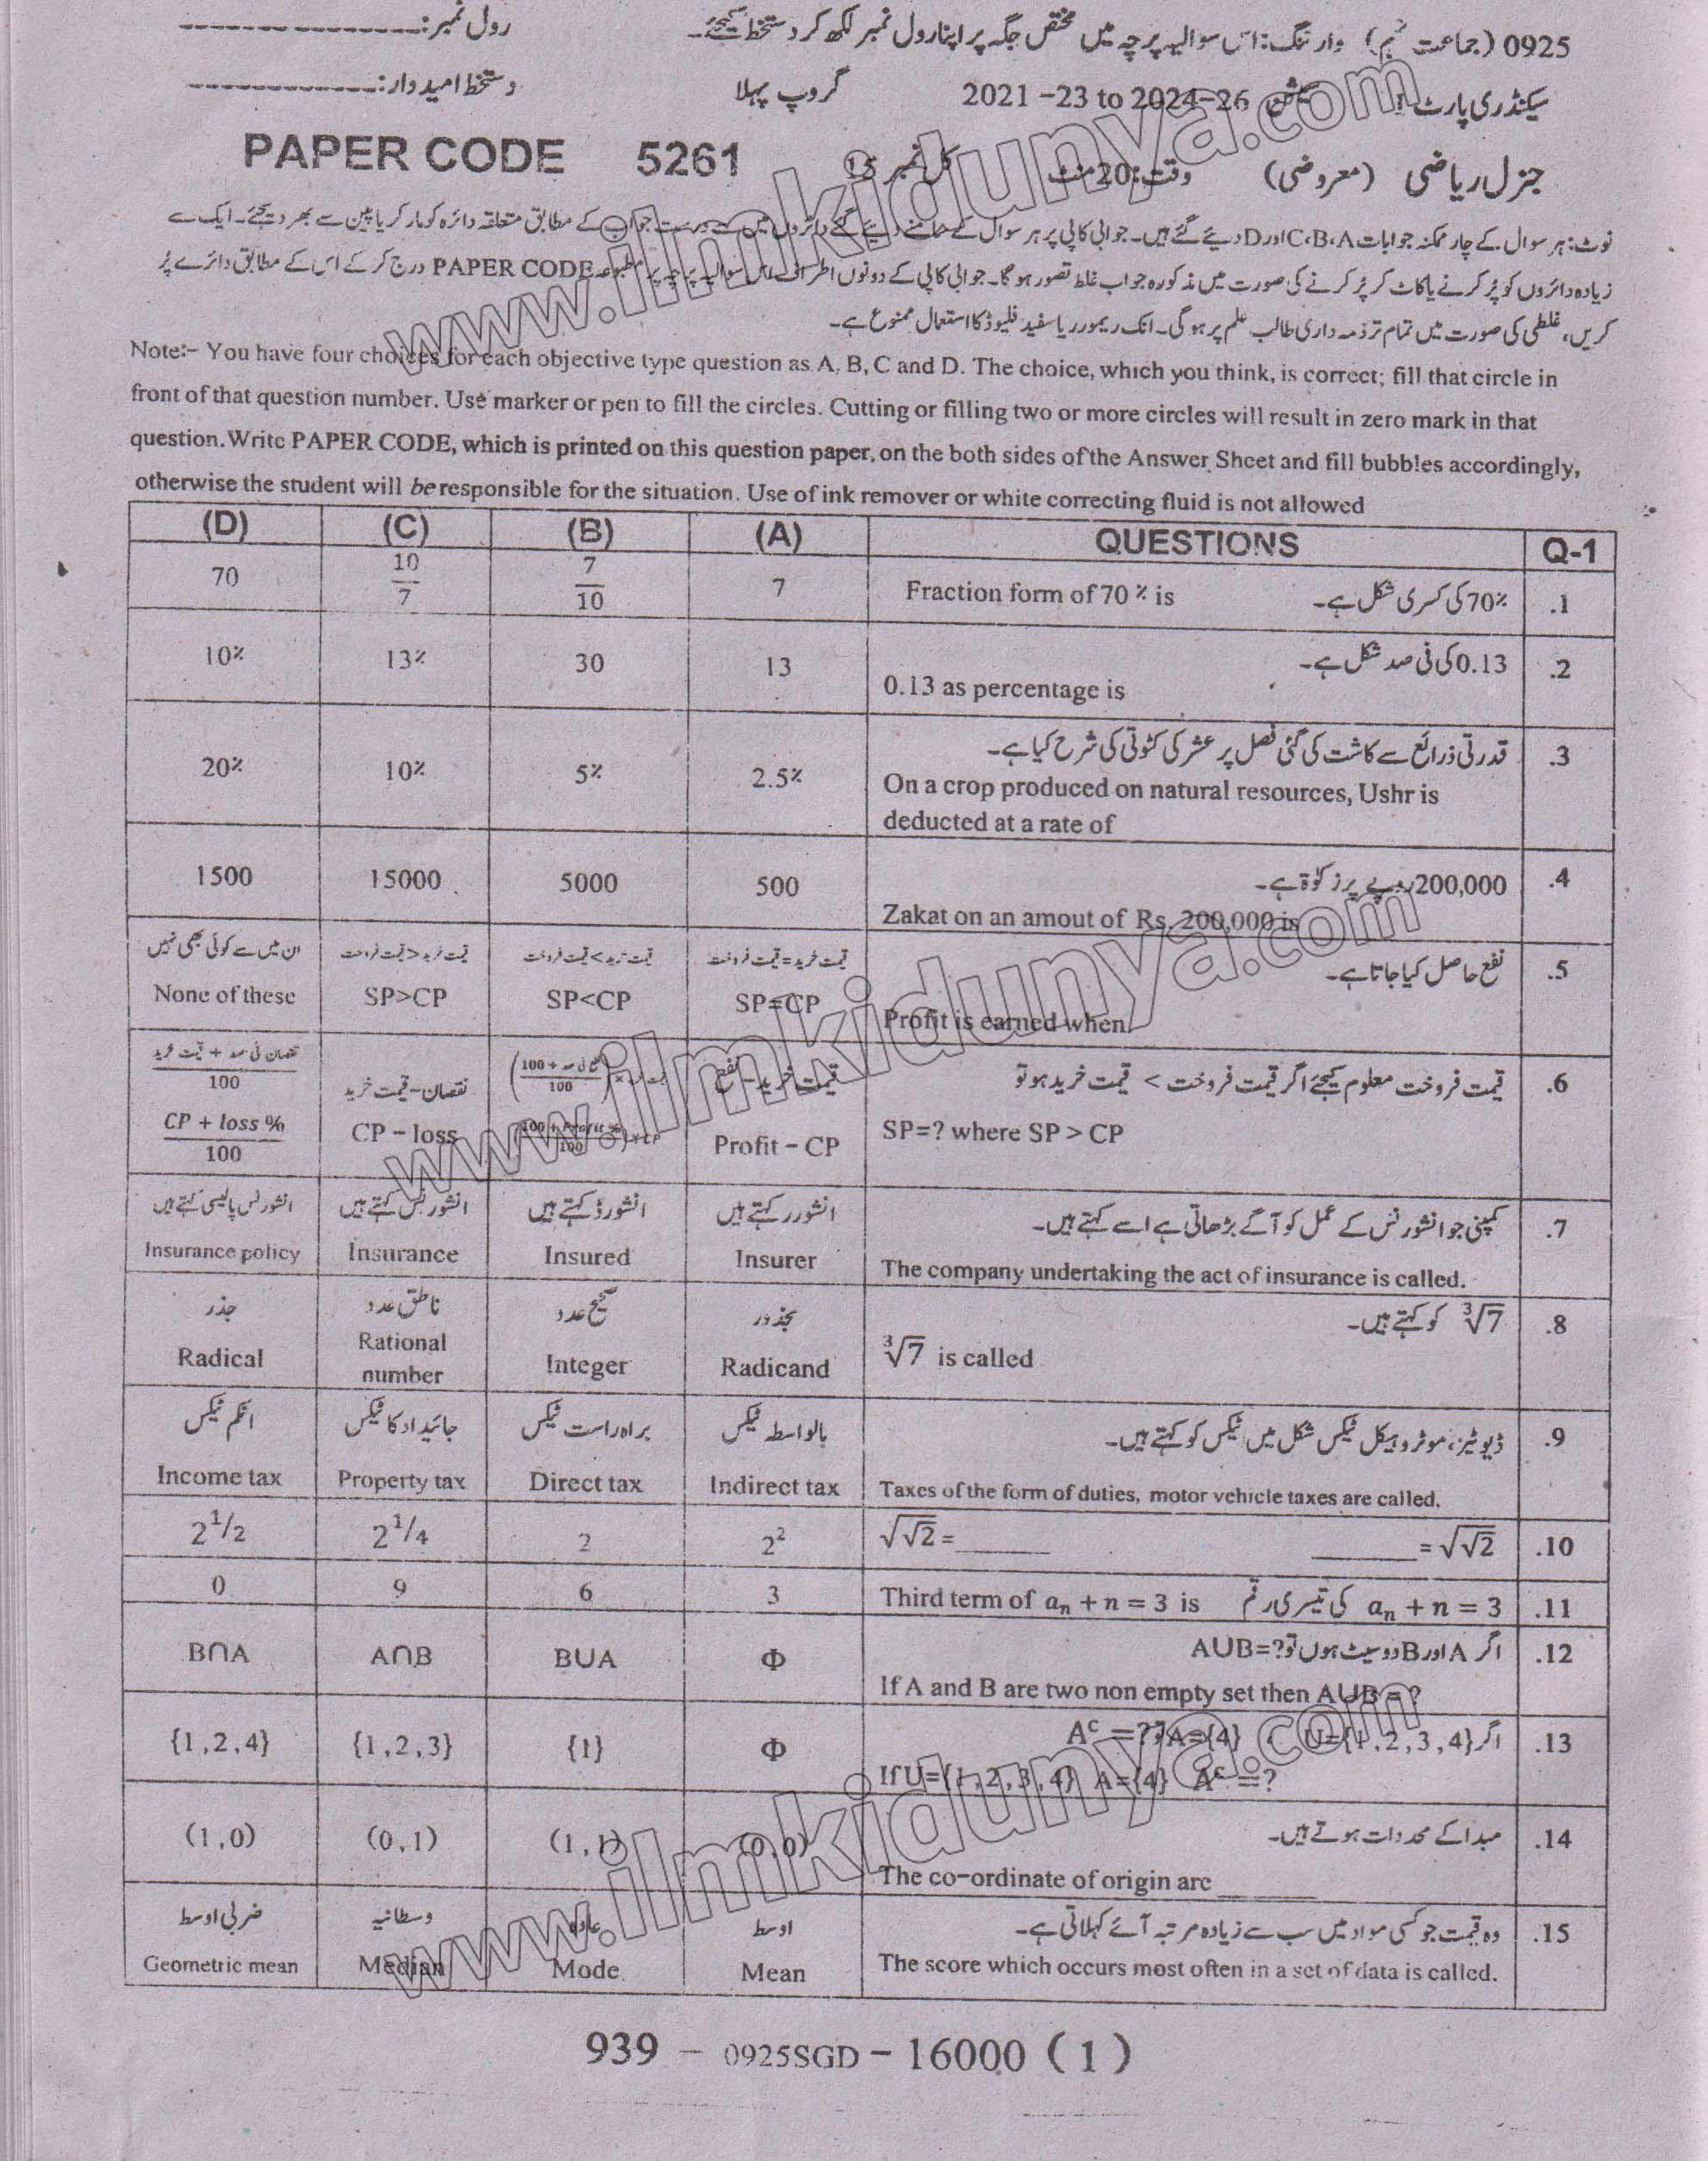 0925 (جماعت نہم) وارننگ: اس سوالیہ پرچہ میں مختص جگہ پر اپنا رول نمبر لکھ کر دستخط کیجئے۔ رول نمبر: ---------------
سیکنڈری پارٹ I سیشن 2021-23 to 2024-26 گروپ پہلا دستخط امیدوار: -------------
جنرل ریاضی (معروضی) وقت: 20 منٹ کل نمبر 15 PAPER CODE 5261
نوٹ: ہر سوال کے چار ممکنہ جوابات C، B، A اور D دیئے گئے ہیں۔ جوابی کاپی پر ہر سوال کے سامنے دیئے گئے دائروں میں سے درست جواب کے مطابق متعلقہ دائرہ کو مارکر یا پین سے بھر دیجئے۔ ایک سے
زیادہ دائروں کو پُر کرنے یا کاٹ کر پُر کرنے کی صورت میں مذکورہ جواب غلط تصور ہوگا۔ جوابی کاپی کے دونوں اطراف اس سوالیہ پرچہ پر مطبوعہ PAPER CODE درج کر کے اس کے مطابق دائرے پُر
کریں، غلطی کی صورت میں تمام تر ذمہ داری طالب علم پر ہوگی۔ انک ریمور یا سفید فلیوڈ کا استعمال ممنوع ہے۔
Note:- You have four choices for each objective type question as A, B, C and D. The choice, which you think, is correct; fill that circle in
front of that question number. Use marker or pen to fill the circles. Cutting or filling two or more circles will result in zero mark in that
question. Write PAPER CODE, which is printed on this question paper, on the both sides of the Answer Sheet and fill bubbles accordingly,
otherwise the student will be responsible for the situation. Use of ink remover or white correcting fluid is not allowed
(D) (C) (B) (A) QUESTIONS Q-1
70 10/7 7/10 7 Fraction form of 70% is 70% کی کسری شکل ہے۔ .1
10% 13% 30 13 0.13 کی فی صد شکل ہے۔ .2
0.13 as percentage is
قدرتی ذرائع سے کاشت کی گئی فصل پر عشر کی کٹوتی کی شرح کیا ہے۔ .3
20% 10% 5% 2.5% On a crop produced on natural resources, Ushr is
deducted at a rate of
1500 15000 5000 500 200,000 روپے پر زکوٰۃ ہے۔ .4
Zakat on an amout of Rs. 200,000 is
ان میں سے کوئی بھی نہیں قیمت خرید < قیمت فروخت قیمت خرید > قیمت فروخت قیمت خرید = قیمت فروخت نفع حاصل کیا جاتا ہے۔ .5
None of these SP>CP SP<CP SP=CP Profit is earned when.
نقصان فی صد + قیمت خرید / 100 نقصان - قیمت خرید قیمت خرید - نفع قیمت فروخت معلوم کیجئے اگر قیمت فروخت > قیمت خرید ہو تو .6
CP + loss % / 100 CP - loss (100 + Profit % / 100) × CP Profit - CP SP=? where SP > CP
انشورنس پالیسی کہتے ہیں انشورنس کہتے ہیں انشورڈ کہتے ہیں انشورر کہتے ہیں کمپنی جو انشورنس کے عمل کو آگے بڑھاتی ہے اسے کہتے ہیں۔ .7
Insurance policy Insurance Insured Insurer The company undertaking the act of insurance is called.
جذر ناطق عدد صحیح عدد مجذور ∛7 کو کہتے ہیں۔ .8
Radical Rational number Integer Radicand ∛7 is called
انکم ٹیکس جائیداد کا ٹیکس براہ راست ٹیکس بالواسطہ ٹیکس ڈیوٹیز، موٹر وہیکل ٹیکس شکل میں ٹیکس کو کہتے ہیں۔ .9
Income tax Property tax Direct tax Indirect tax Taxes of the form of duties, motor vehicle taxes are called.
2^1/2 2^1/4 2 2² √√2 = ______ ______ = √√2 .10
0 9 6 3 Third term of aₙ + n = 3 is aₙ + n = 3 کی تیسری رقم .11
B∩A A∩B B∪A Φ اگر A اور B دو سیٹ ہوں تو A∪B=? .12
If A and B are two non empty set then A∪B = ?
{1,2,4} {1,2,3} {1} Φ اگر U={1,2,3,4} ، A={4} تو Aᶜ =? .13
If U={1,2,3,4) A={4} Aᶜ =?
(1,0) (0,1) (1,1) (0,0) مبدا کے محددات ہوتے ہیں۔ .14
The co-ordinate of origin are ______
ضربی اوسط وسطانیہ عادہ اوسط وہ قیمت جو کسی مواد میں سب سے زیادہ مرتبہ آئے کہلاتی ہے۔ .15
Geometric mean Median Mode Mean The score which occurs most often in a set of data is called.
939 - 0925SGD - 16000 (1)
www.ilmkidunya.com
www.ilmkidunya.com
www.ilmkidunya.com